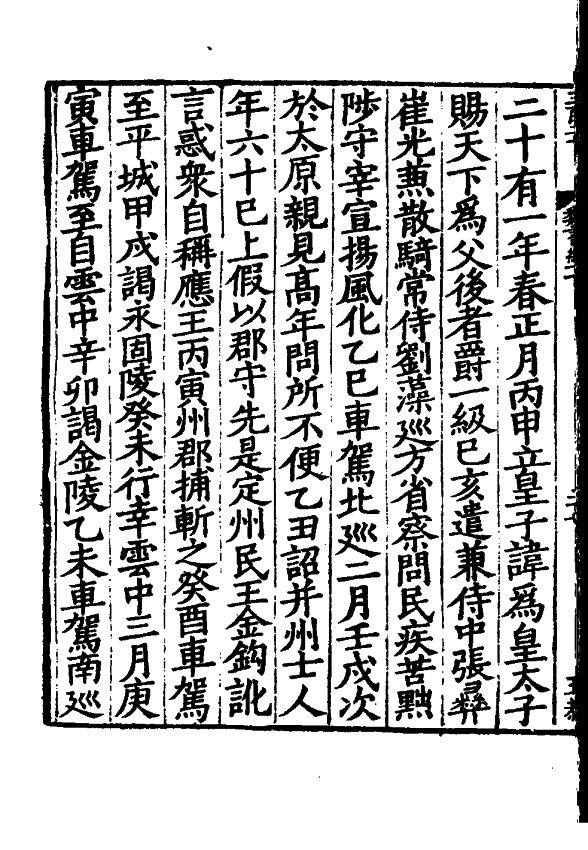 二十有一年春正月丙申立皇子諱爲皇太子
賜天下爲父後者爵一級己亥遣兼侍中張彝
崔光兼散騎常侍劉藻巡方省察問民疾苦黜
陟守宰宣揚風化乙巳車駕北巡二月壬戌次
於太原親見高年問所不便乙丑詔并州士人
年六十已上假以郡守先是定州民王金鈎訛
言惑衆自稱應王丙寅州郡捕斬之癸酉車駕
至平城甲戌謁永固陵癸未行幸雲中三月庚
寅車駕至自雲中辛卯謁金陵乙未車駕南巡